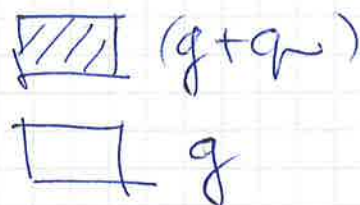 (g+q)
g